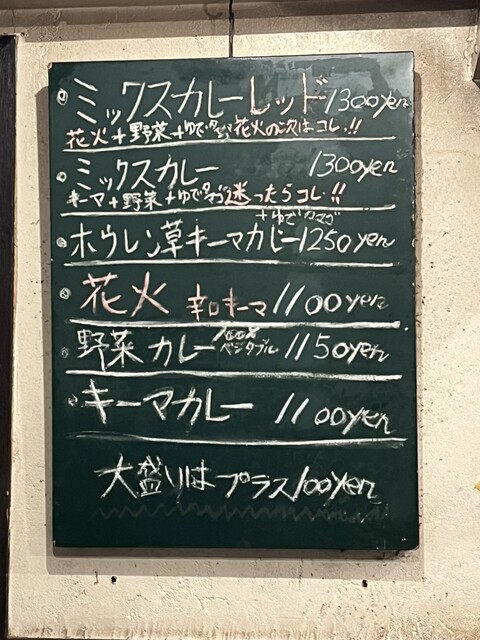 ミックスカレーレッド1300yen
花火+野菜+ゆでタマゴ 花火の次はコレ!!
ミックスカレー 1300yen
キーマ+野菜+ゆでタマゴ 迷ったらコレ!!
+ゆでタマゴ
ホウレン草キーマカレー1250yen
花火 辛口キーマ 1100yen
野菜カレー ベジタブル 1150yen
キーマカレー 1100yen
大盛りはプラス100yen